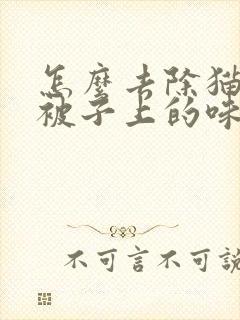 怎麼去除猫
被子上的味
不可言不可說